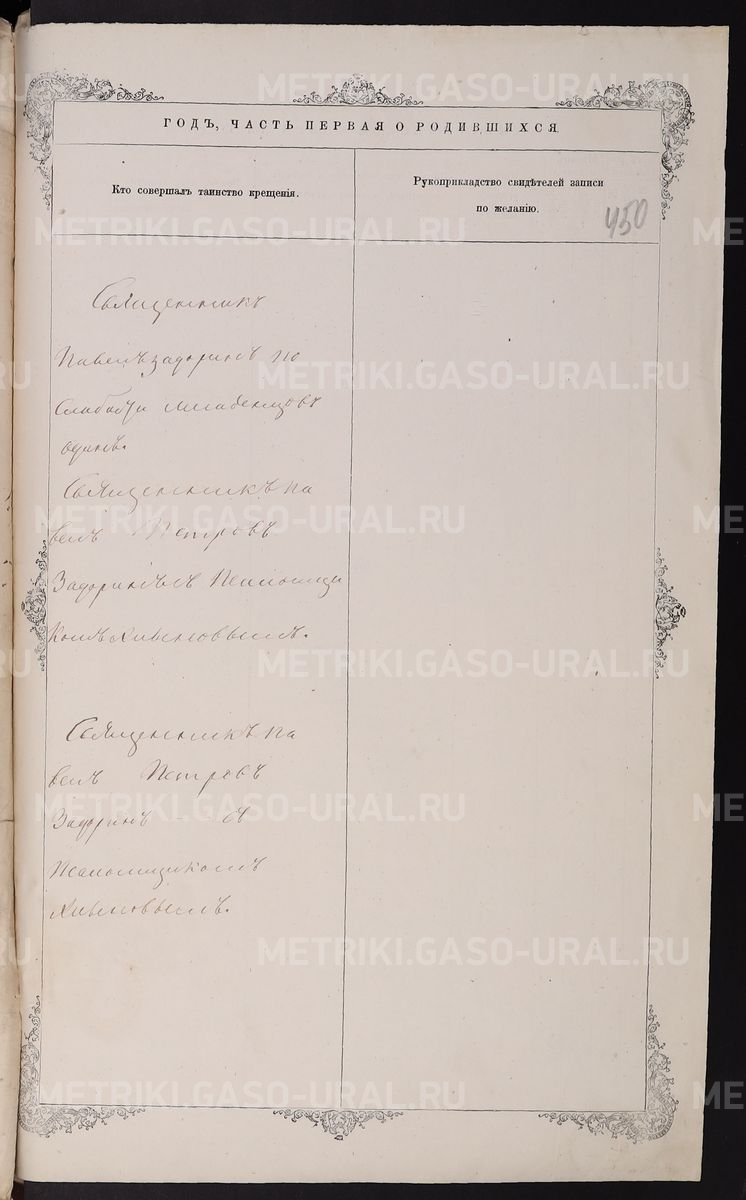 ГОДЪ, ЧАСТЬ ПЕРВАЯ О РОДИВШИХСЯ
Кто совершалъ таинство крещенія.
Рукоприкладство свидѣтелей записи
по желанію.
450
Священникъ
Павелъ Задоринъ по
слабости младенцовъ
одинъ.
Священникъ Па
велъ Петровъ
Задоринъ съ Псаломщи
комъ
Священникъ Па
велъ Петровъ
Задоринъ съ
Псаломщикомъ
METRIKI.GASO-URAL.RU